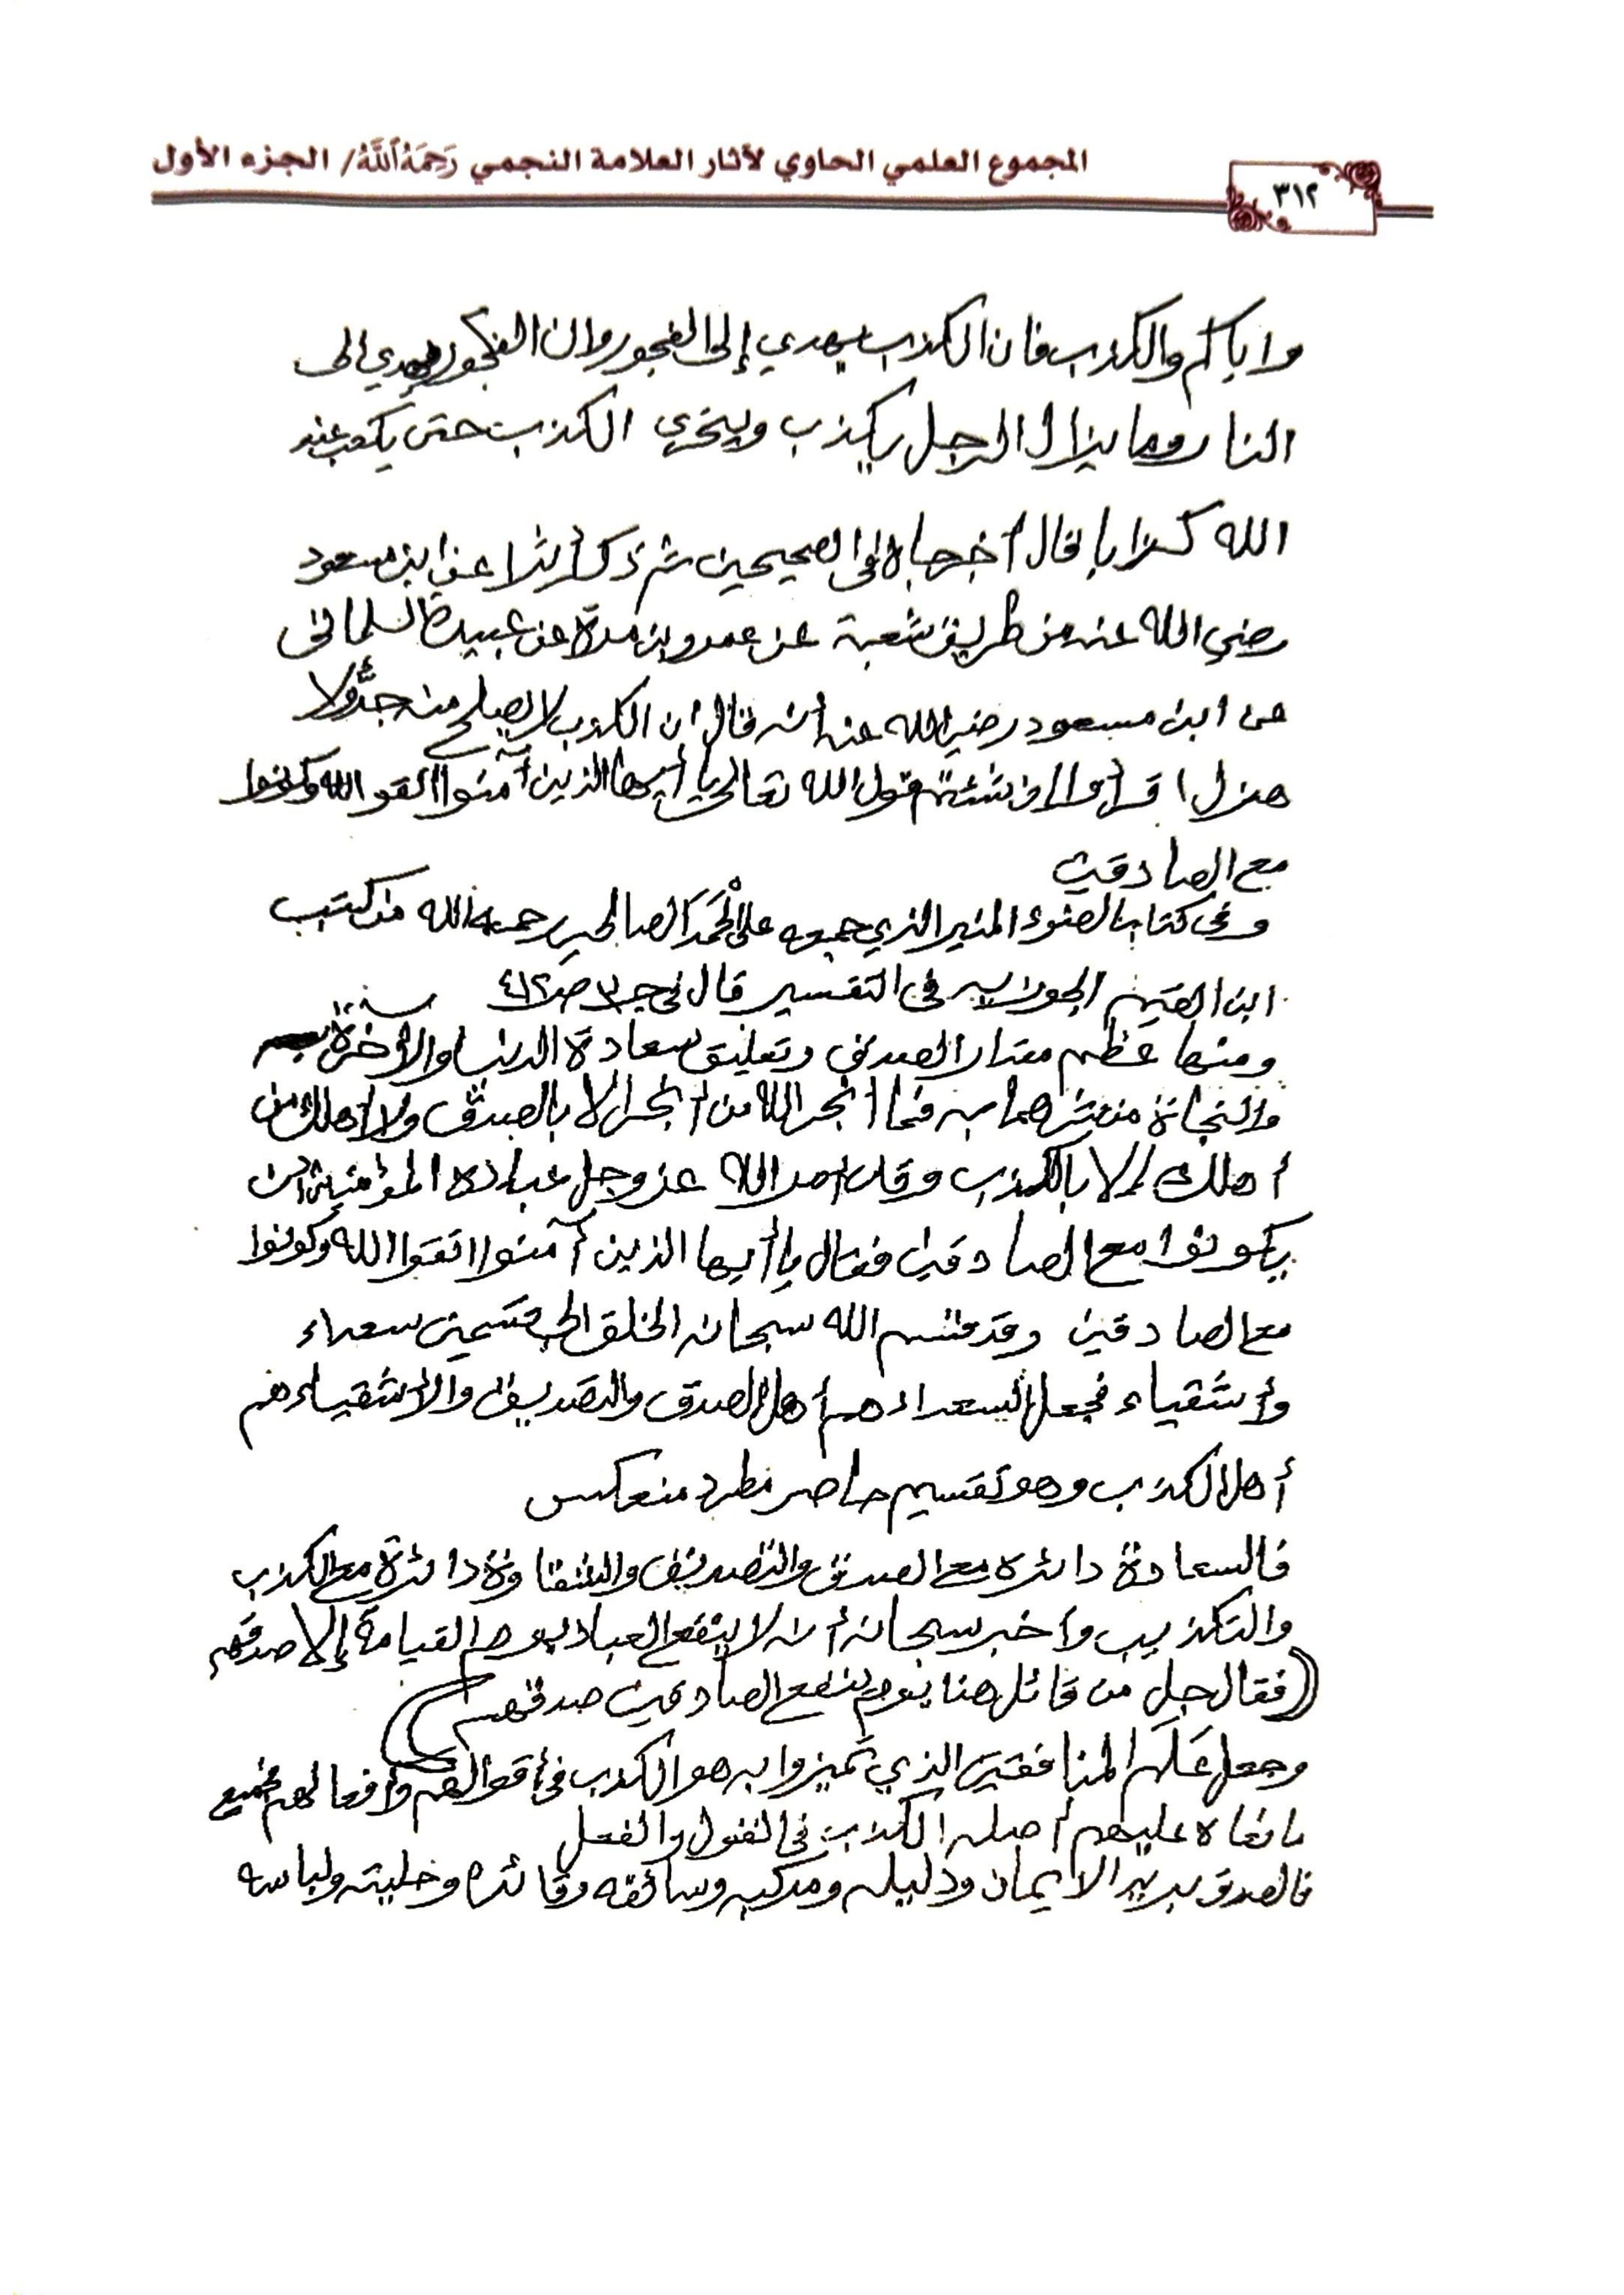 المجموع العلمي الحاوي لآثار العلامة النجمي رَحِمَهُ اللَّهُ / الجزء الأول
٣١٢
واياكم والكذب فان الكذب يهدي إلى الفجور وان الفجور يهدي الى
النار وما يزال الرجل يكذب ويتحرى الكذب حتى يكتب عند
الله كذابا قال أخرجاه في الصحيحين ثم ذكر أثرا عن ابن مسعود
رضي الله عنه من طريق شعبة عن عمرو بن مرة عن عبيدة السلماني
عن ابن مسعود رضي الله عنه أنه قال ان الكذب لا يصلح منه جدٌّ ولا
هزل اقرأوا إن شئتم قول الله تعالى يا أيها الذين آمنوا اتقوا الله وكونوا
مع الصادقين
وفي كتاب الضوء المنير الذي جمعه علي الحَمَد الصالحي رحمه الله من كتب
ابن القيم الجوزيه في التفسير قال في جـ٣ صـ٤١٢
ومنها عظم مقدار الصدق وتعليق سعادة الدنيا والآخرة به
والنجاة من شرهما به فما أنجى الله من أنجى إلا بالصدق ولا أهلك من
أهلك إلا بالكذب وقد أمر الله عز وجل عباده المؤمنين أن
يكونوا مع الصادقين فقال يا أيها الذين آمنوا اتقوا الله وكونوا
مع الصادقين وقد قسم الله سبحانه الخلق إلى قسمين سعداء
وأشقياء فجعل السعداء هم أهل الصدق والتصديق والأشقياء هم
أهل الكذب وهو تقسيم حاصر مطرد منعكس
فالسعادة دائره مع الصدق والتصديق والشقاوة دائرة مع الكذب
والتكذيب وأخبر سبحانه أنه لا ينفع العباد يوم القيامة إلا صدقهم
((فقال جل من قائل هذا يوم ينفع الصادقين صدقهم))
وجعل عَلَمَ المنافقين الذي تميزوا به هو الكذب في أقوالهم وأفعالهم فجميع
ما نعاه عليهم أصله الكذب في القول والفعل
فالصدق بريد الايمان ودليله ومركبه وسائقه وقائده وحليته ولباسه